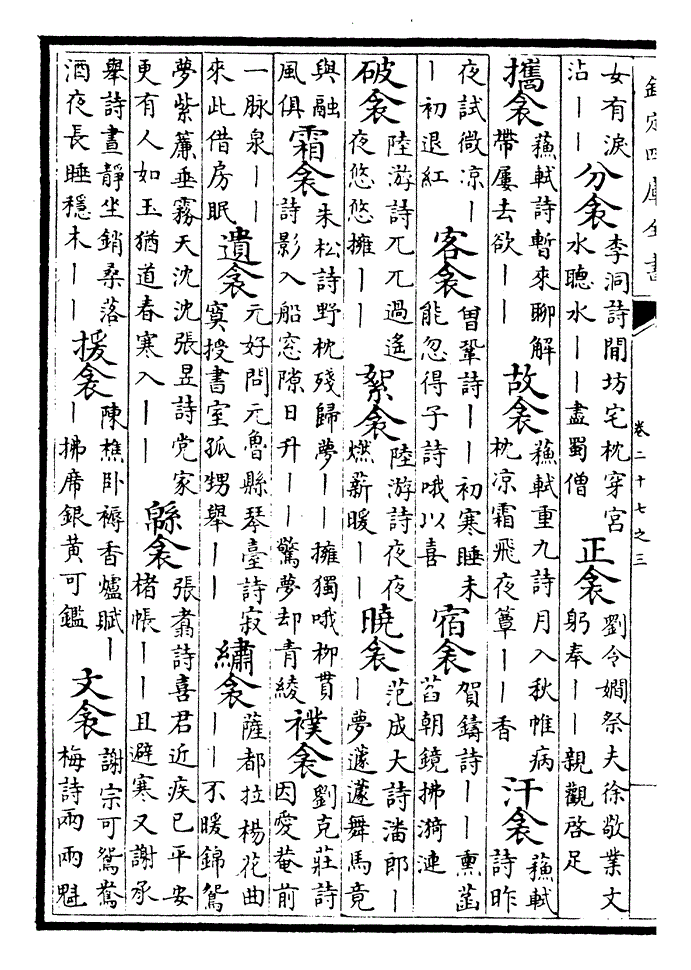 欽定四庫全書 卷二十七之三
女有淚沾丨丨 分衾 李洞詩閒坊宅枕穿宮水聽水丨丨盡蜀僧 正衾 劉令嫺祭夫徐敬業文躬奉丨丨親觀啓足
攜衾 蘇軾詩暫來聊解帶屢去欲丨丨 故衾 蘇軾重九詩月入秋帷病枕凉霜飛夜簟丨丨香 汗衾 蘇軾詩昨
夜試微凉丨丨初退紅 客衾 曾鞏詩丨丨初寒睡未能忽得子詩哦以喜 宿衾 賀鑄詩丨丨熏菡萏朝鏡拂漪漣
破衾 陸游詩兀兀過遙夜悠悠擁丨丨 絮衾 陸游詩夜夜燃薪暖丨丨 曉衾 范成大詩潘郎丨丨夢蘧蘧舞馬竟
與融風俱 霜衾 朱松詩野枕殘歸夢丨丨擁獨哦柳貫詩影入船窓隙日升丨丨驚夢却青綾 襆衾 劉克莊詩因愛菴前
一脉泉丨丨來此借房眠 遺衾 元好問元魯縣琴臺詩寂寞授書室孤甥舉丨丨 繡衾 薩都拉楊花曲丨丨不暖錦鴛
夢紫簾垂霧天沈沈張昱詩党家更有人如玉猶道春寒入丨丨 緜衾 張翥詩喜君近疾已平安楮帳丨丨且避寒又謝承
舉詩晝靜坐銷桑落酒夜長睡穩木丨丨 援衾 陳樵卧褥香爐賦丨丨拂席銀黃可鑑 文衾 謝宗可鴛鴦梅詩兩兩魁